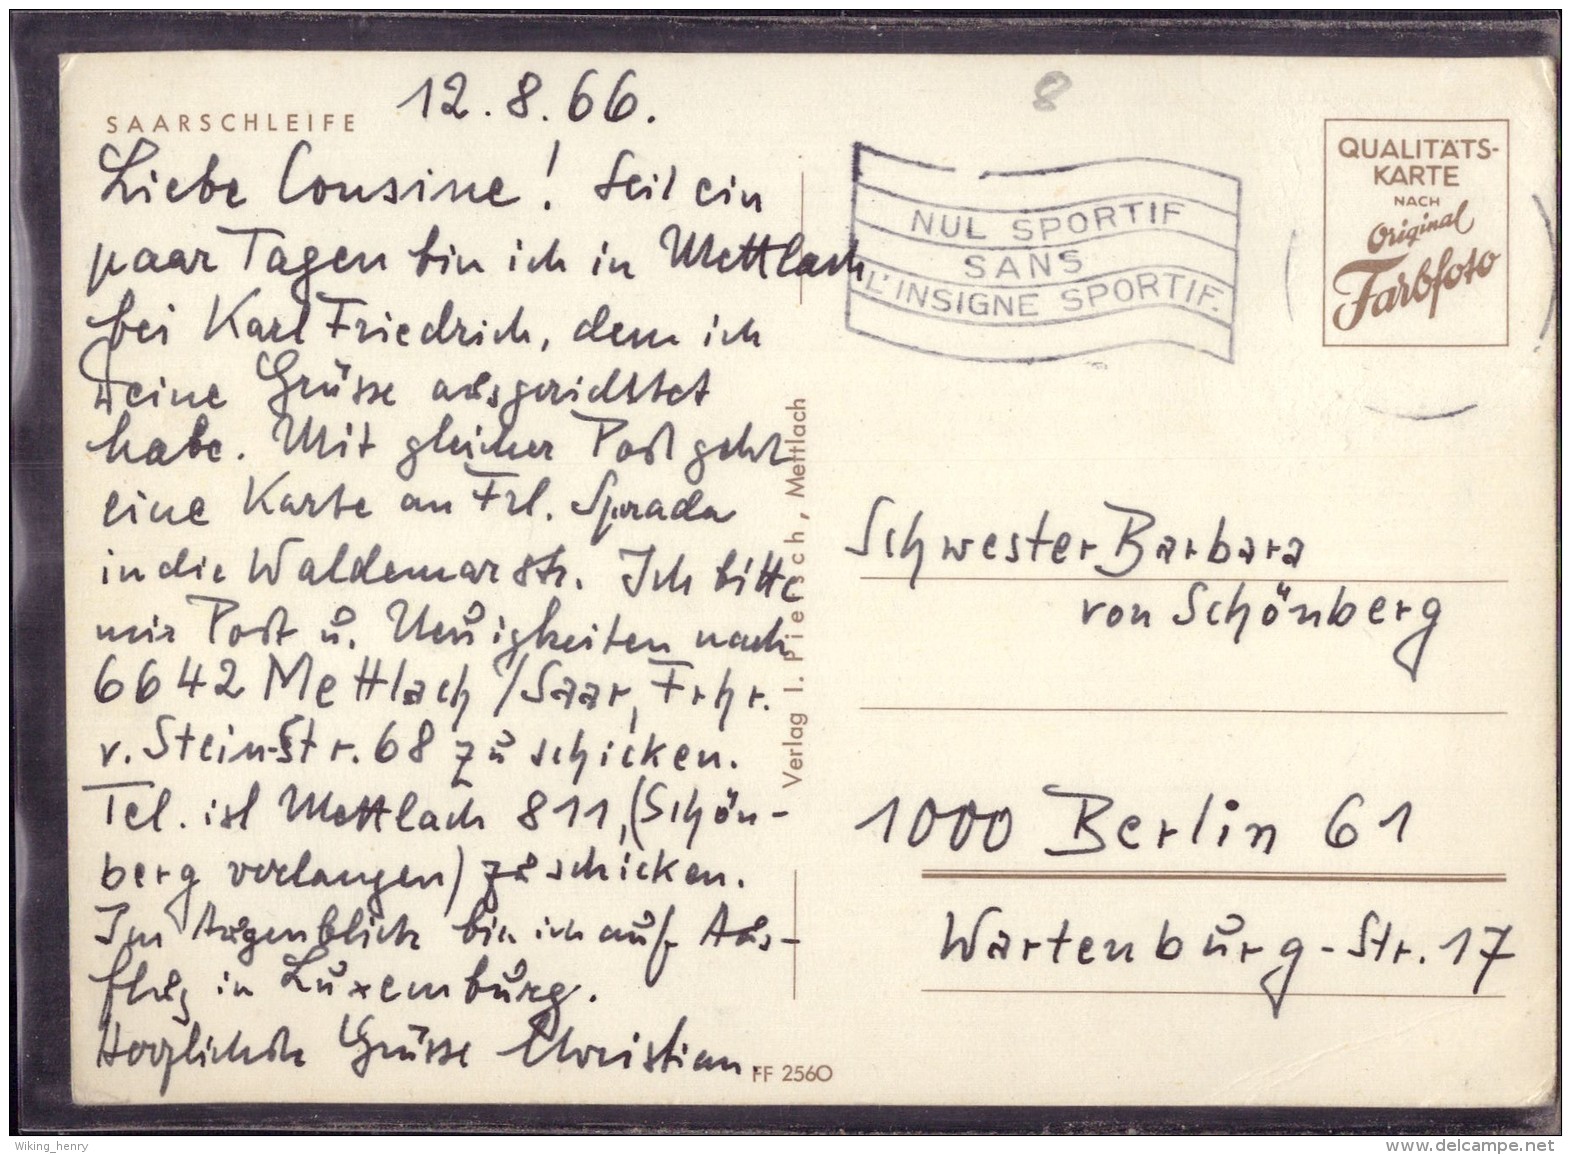 SAARSCHLEIFE
12.8.66.
Liebe Cousine! Seit ein
paar Tagen bin ich in Mettlach
bei Karl Friedrich, dem ich
Deine Grüsse ausgerichtet
habe. Mit gleicher Post geht
eine Karte an Frl. Sprada
in die Waldemarstr. Ich bitte
mir Post u. Neuigkeiten nach
6642 Mettlach/Saar, Frhr.
v. Stein-Str. 68 zu schicken.
Tel. ist Mettlach 811, (Schön-
berg verlangen) zu schicken.
Im Augenblick bin ich auf Aus-
flug in Luxemburg.
Herzlichste Grüsse Christian.
FF 2560
Verlag I. Pietsch, Mettlach
8
NUL SPORTIF
SANS
L'INSIGNE SPORTIF.
QUALITÄTS-
KARTE
NACH
Original
Farbfoto
Schwester Barbara
von Schönberg
1000 Berlin 61
Wartenburg-Str. 17
Wiking_henry
www.delcampe.net